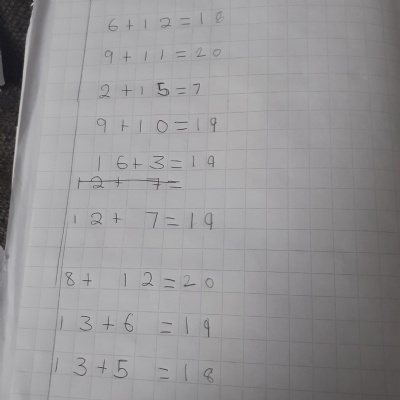 6+12=18
9+11=20
2+15=7
9+10=19
16+3=19
12+ 7=
12+ 7=19
8+ 12=20
13+6 =19
13+5 =18